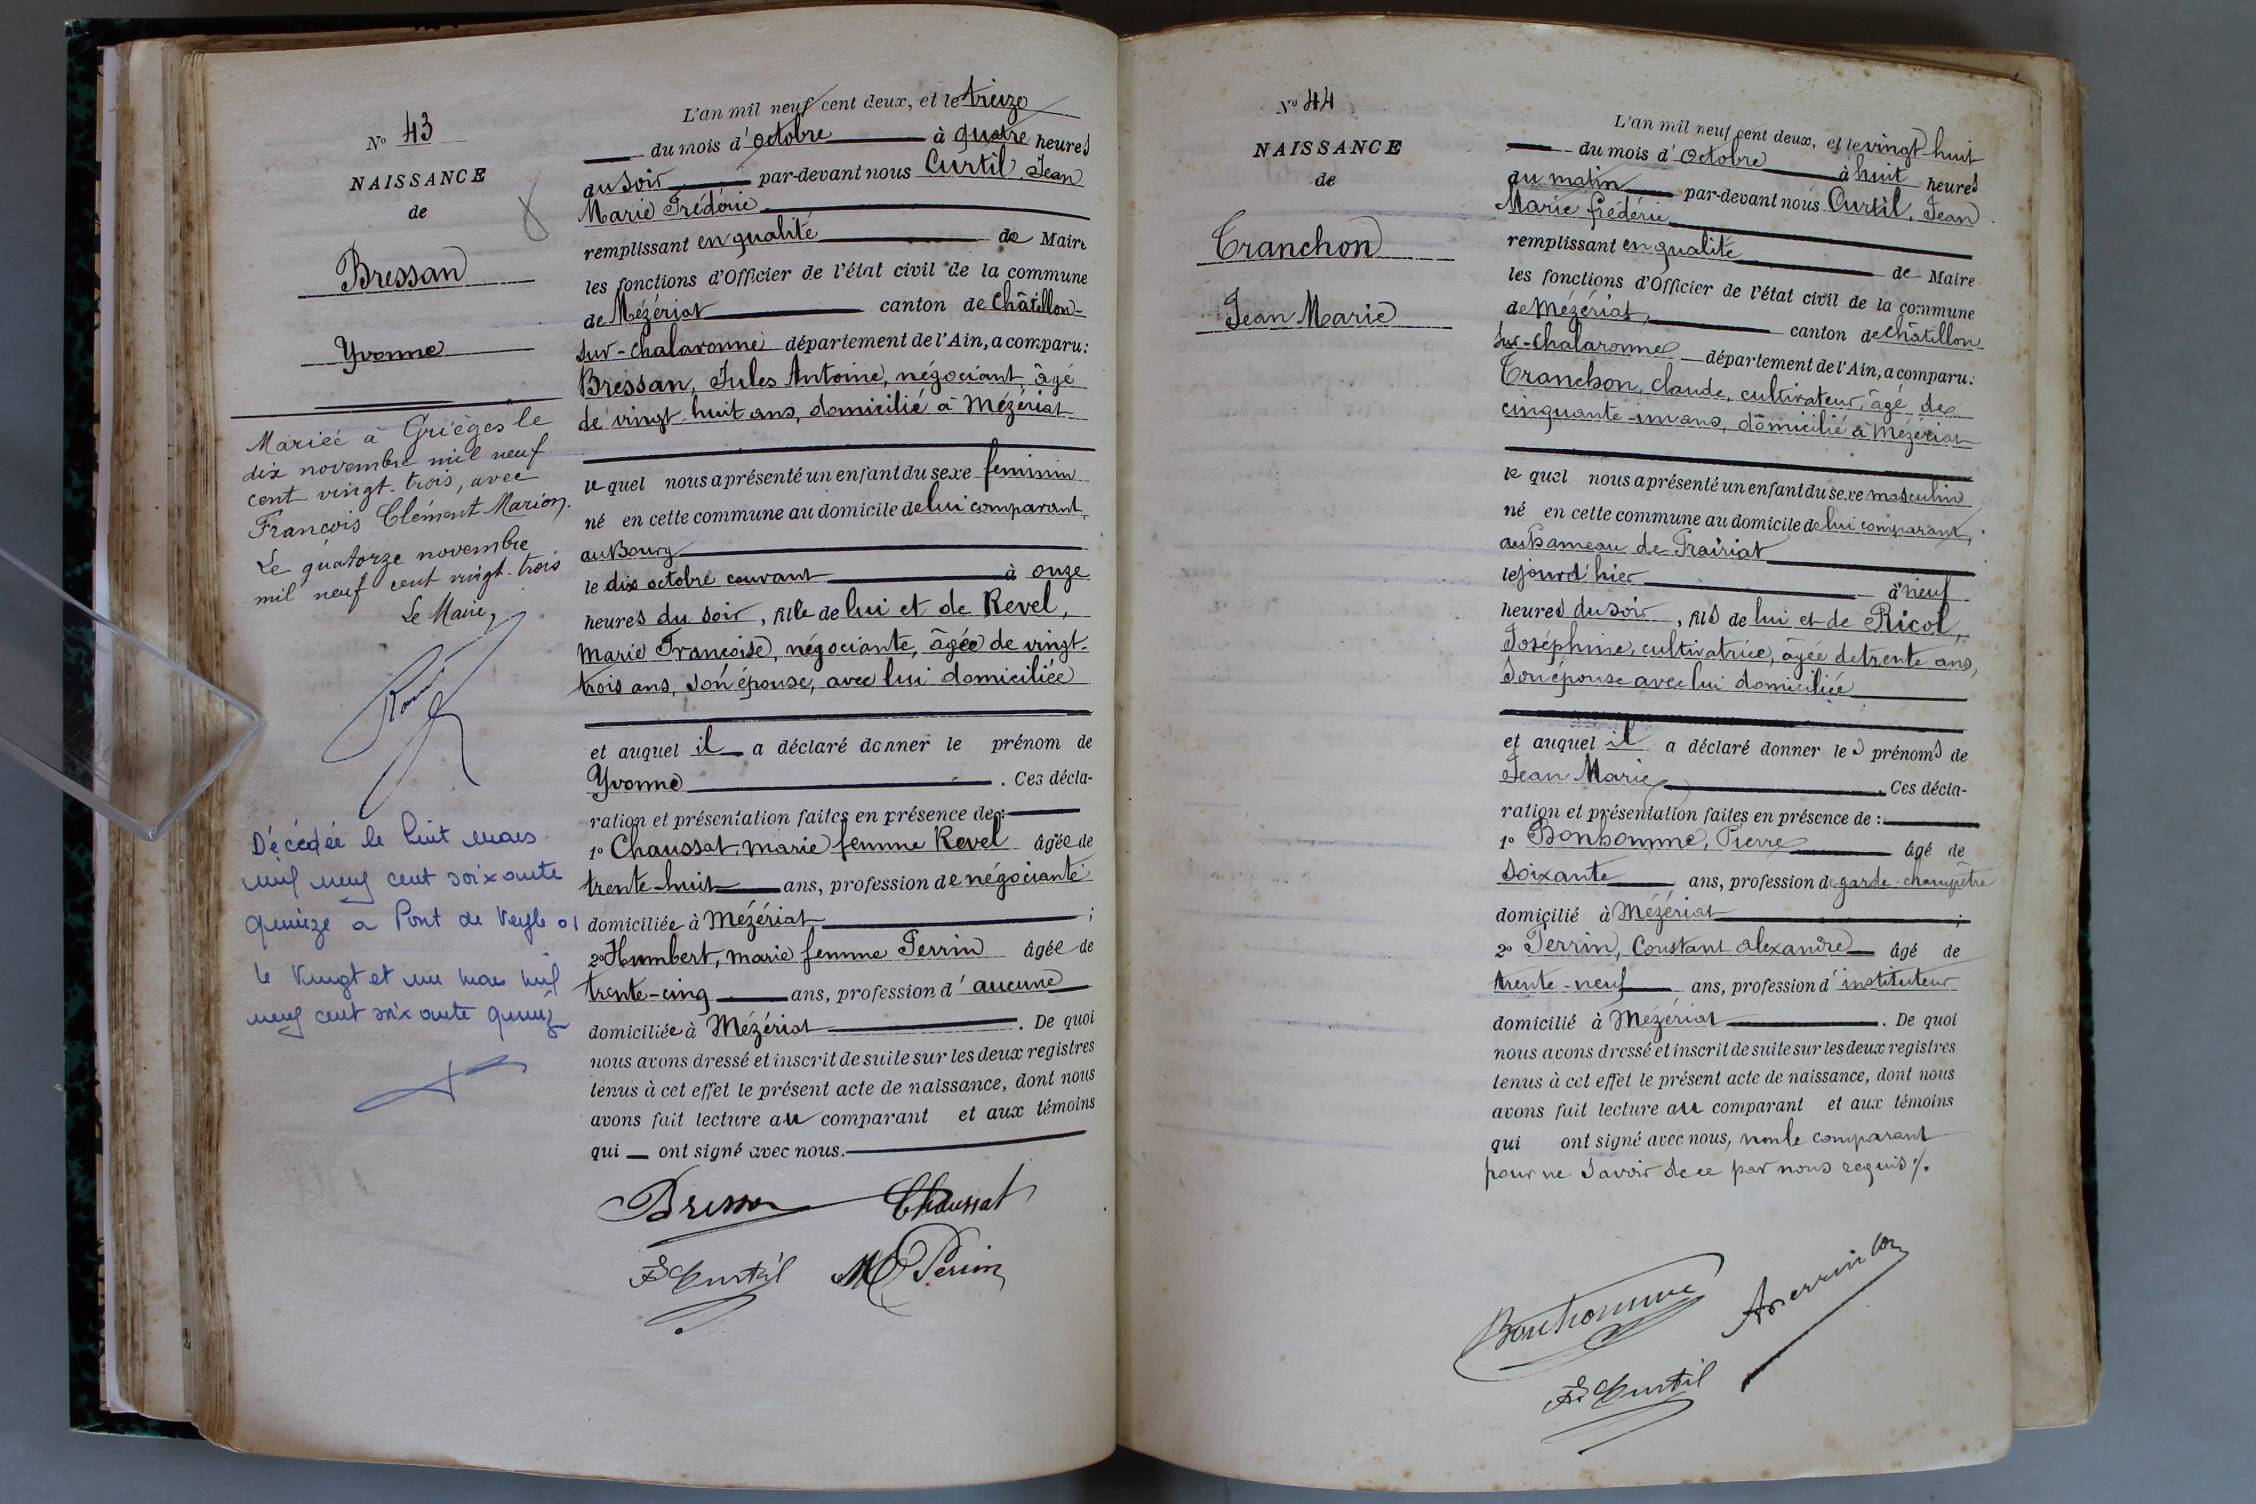 N° 43
NAISSANCE
de
Bressan
Yvonne
Mariée à Grièges le
dix novembre mil neuf
cent vingt-trois, avec
François Clément Marion.
Le quatorze novembre
mil neuf cent vingt-trois
Le Maire,
Décédée le huit mars
mil neuf cent soixante
quinze a Pont de Veyle 01
le vingt et un mars mil
neuf cent soixante quinze
L'an mil neuf cent deux, et le treize
du mois d'octobre à quatre heures
du soir par-devant nous Curtil, Jean
Marie Frédéric
remplissant en qualité de Maire
les fonctions d'Officier de l'état civil de la commune
de Mézériat canton de Châtillon-
sur-Chalaronne département de l'Ain, a comparu:
Bressan, Jules Antoine, négociant, âgé
de vingt-huit ans, domicilié à Mézériat
le quel nous a présenté un enfant du sexe feminin
né en cette commune au domicile de lui comparant,
au Bourg
le dix octobre courant à onze
heures du soir, fille de lui et de Revel,
Marie Françoise, négociante, âgée de vingt-
trois ans, son épouse, avec lui domiciliée
et auquel il a déclaré donner le prénom de
Yvonne. Ces décla-
ration et présentation faites en présence de:
1° Chaussat, marie femme Revel âgée de
trente-huit ans, profession de négociante
domiciliée à Mézériat;
2° Humbert, marie femme Perrin âgée de
trente-cinq ans, profession d'aucune
domiciliée à Mézériat. De quoi
nous avons dressé et inscrit de suite sur les deux registres
tenus à cet effet le présent acte de naissance, dont nous
avons fait lecture au comparant et aux témoins
qui ont signé avec nous.
Bressan Chaussat
F Curtil M Perrin
N° 44
NAISSANCE
de
Tranchon
Jean Marie
L'an mil neuf cent deux, et le vingt huit
du mois d'octobre à huit heures
du matin par-devant nous Curtil, Jean
Marie frédéric
remplissant en qualité de Maire
les fonctions d'Officier de l'état civil de la commune
de Mézériat, canton de Châtillon
sur-Chalaronne département de l'Ain, a comparu:
Tranchon, claude, cultivateur, âgé de
cinquante-un ans, domicilié à Mézériat
le quel nous a présenté un enfant du sexe masculin
né en cette commune au domicile de lui comparant,
au hameau de Prairiat
le jourd'hier à neuf
heures du soir, fils de lui et de Ricol,
Joséphine, cultivatrice, âgée de trente ans,
son épouse avec lui domiciliée
et auquel il a déclaré donner les prénoms de
Jean Marie. Ces décla-
ration et présentation faites en présence de:
1° Bonhomme, Pierre âgé de
soixante ans, profession de garde-champêtre
domicilié à Mézériat;
2° Perrin, Constant alexandre âgé de
trente-neuf ans, profession d'instituteur
domicilié à Mézériat. De quoi
nous avons dressé et inscrit de suite sur les deux registres
tenus à cet effet le présent acte de naissance, dont nous
avons fait lecture au comparant et aux témoins
qui ont signé avec nous, non le comparant
pour ne savoir de ce par nous requis ./.
Bonhomme Aperrin
F Curtil